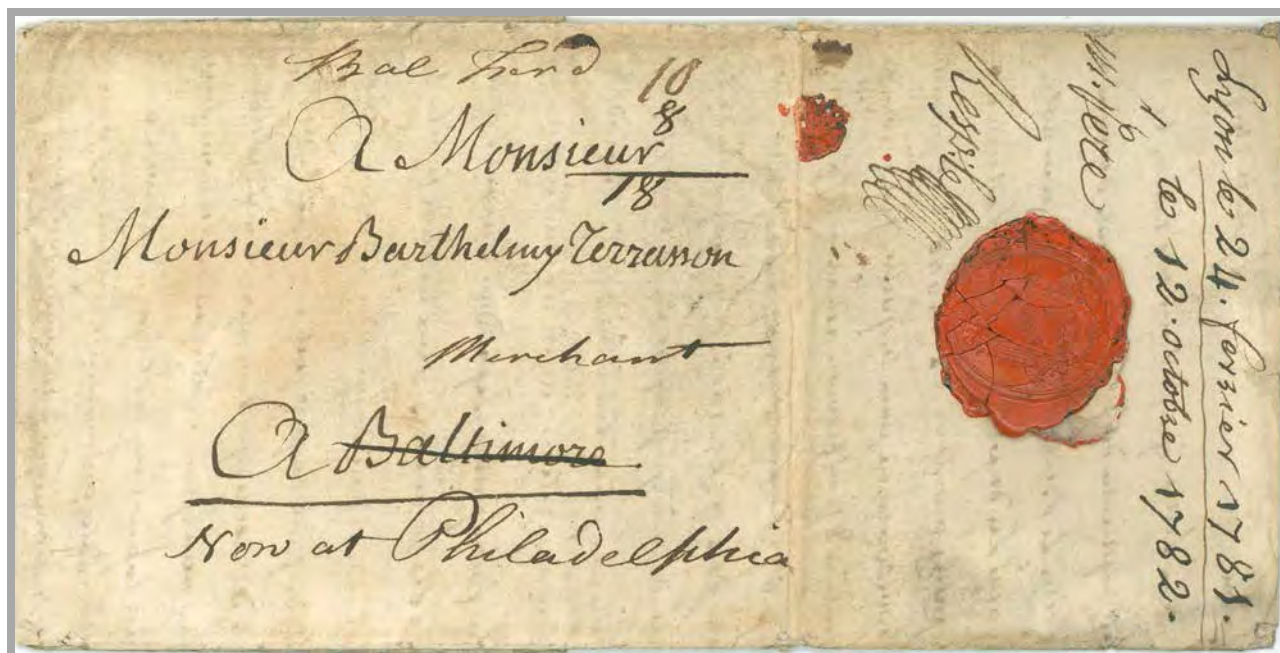 Bal
10
8
A Monsieur
18
Monsieur Barthelmy Terrasson
Merchant
A Baltimore
Now at Philadelphia
Lyon le 24. fevrier 1781.
le 12. octobre 1782.